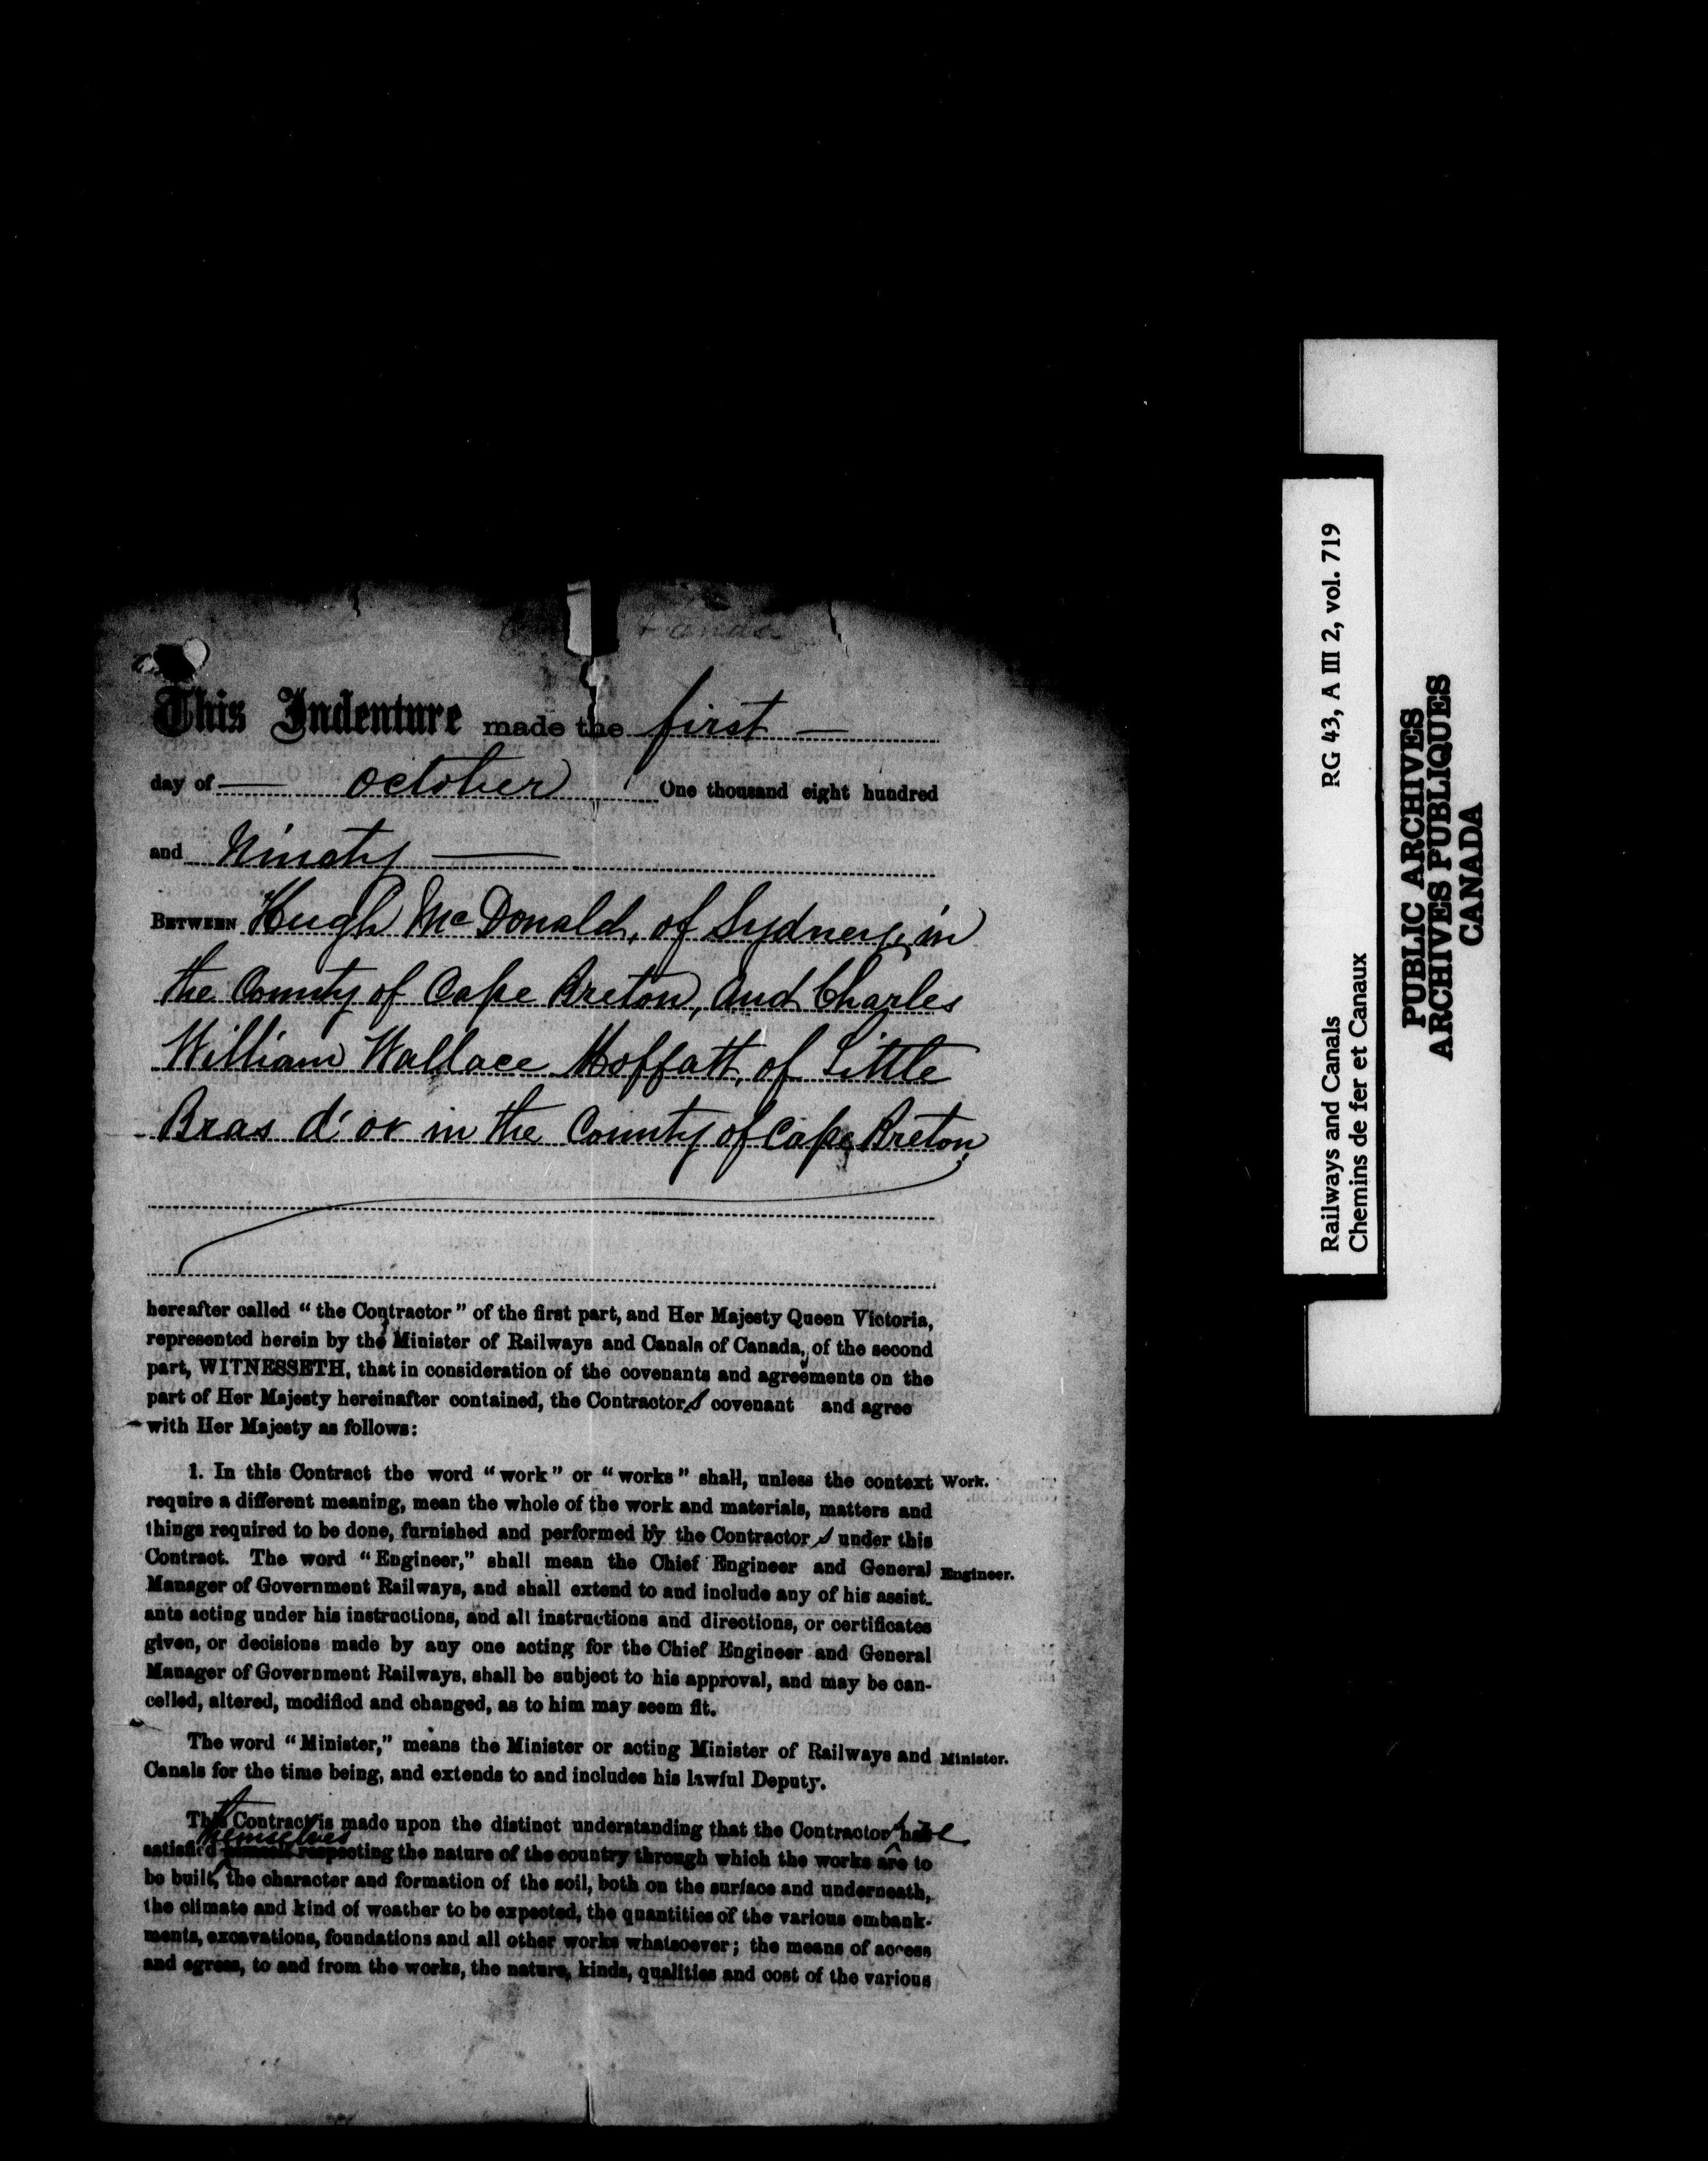 This Indenture made the first —
day of — October One thousand eight hundred
and Ninety —
BETWEEN Hugh McDonald, of Sydney, in
the County of Cape Breton, and Charles
William Wallace Moffatt, of Little
Bras d'or in the County of Cape Breton,
hereafter called “the Contractor” of the first part, and Her Majesty Queen Victoria,
represented herein by the Minister of Railways and Canals of Canada, of the second
part, WITNESSETH, that in consideration of the covenants and agreements on the
part of Her Majesty hereinafter contained, the Contractors covenant and agree
with Her Majesty as follows:
1. In this Contract the word “work” or “works” shall, unless the context Work.
require a different meaning, mean the whole of the work and materials, matters and
things required to be done, furnished and performed by the Contractors under this
Contract. The word “Engineer,” shall mean the Chief Engineer and General Engineer.
Manager of Government Railways, and shall extend to and include any of his assist-
ants acting under his instructions, and all instructions and directions, or certificates
given, or decisions made by any one acting for the Chief Engineer and General
Manager of Government Railways, shall be subject to his approval, and may be can-
celled, altered, modified and changed, as to him may seem fit.
The word “Minister,” means the Minister or acting Minister of Railways and Minister.
Canals for the time being, and extends to and includes his lawful Deputy.
This Contract is made upon the distinct understanding that the Contractors have
themselves
satisfied himself respecting the nature of the country through which the works are to
be built, the character and formation of the soil, both on the surface and underneath,
the climate and kind of weather to be expected, the quantities of the various embank-
ments, excavations, foundations and all other works whatsoever; the means of access
and egress, to and from the works, the nature, kinds, qualities and cost of the various
Railways and Canals RG 43, A III 2, vol. 719
Chemins de fer et Canaux
PUBLIC ARCHIVES
ARCHIVES PUBLIQUES
CANADA